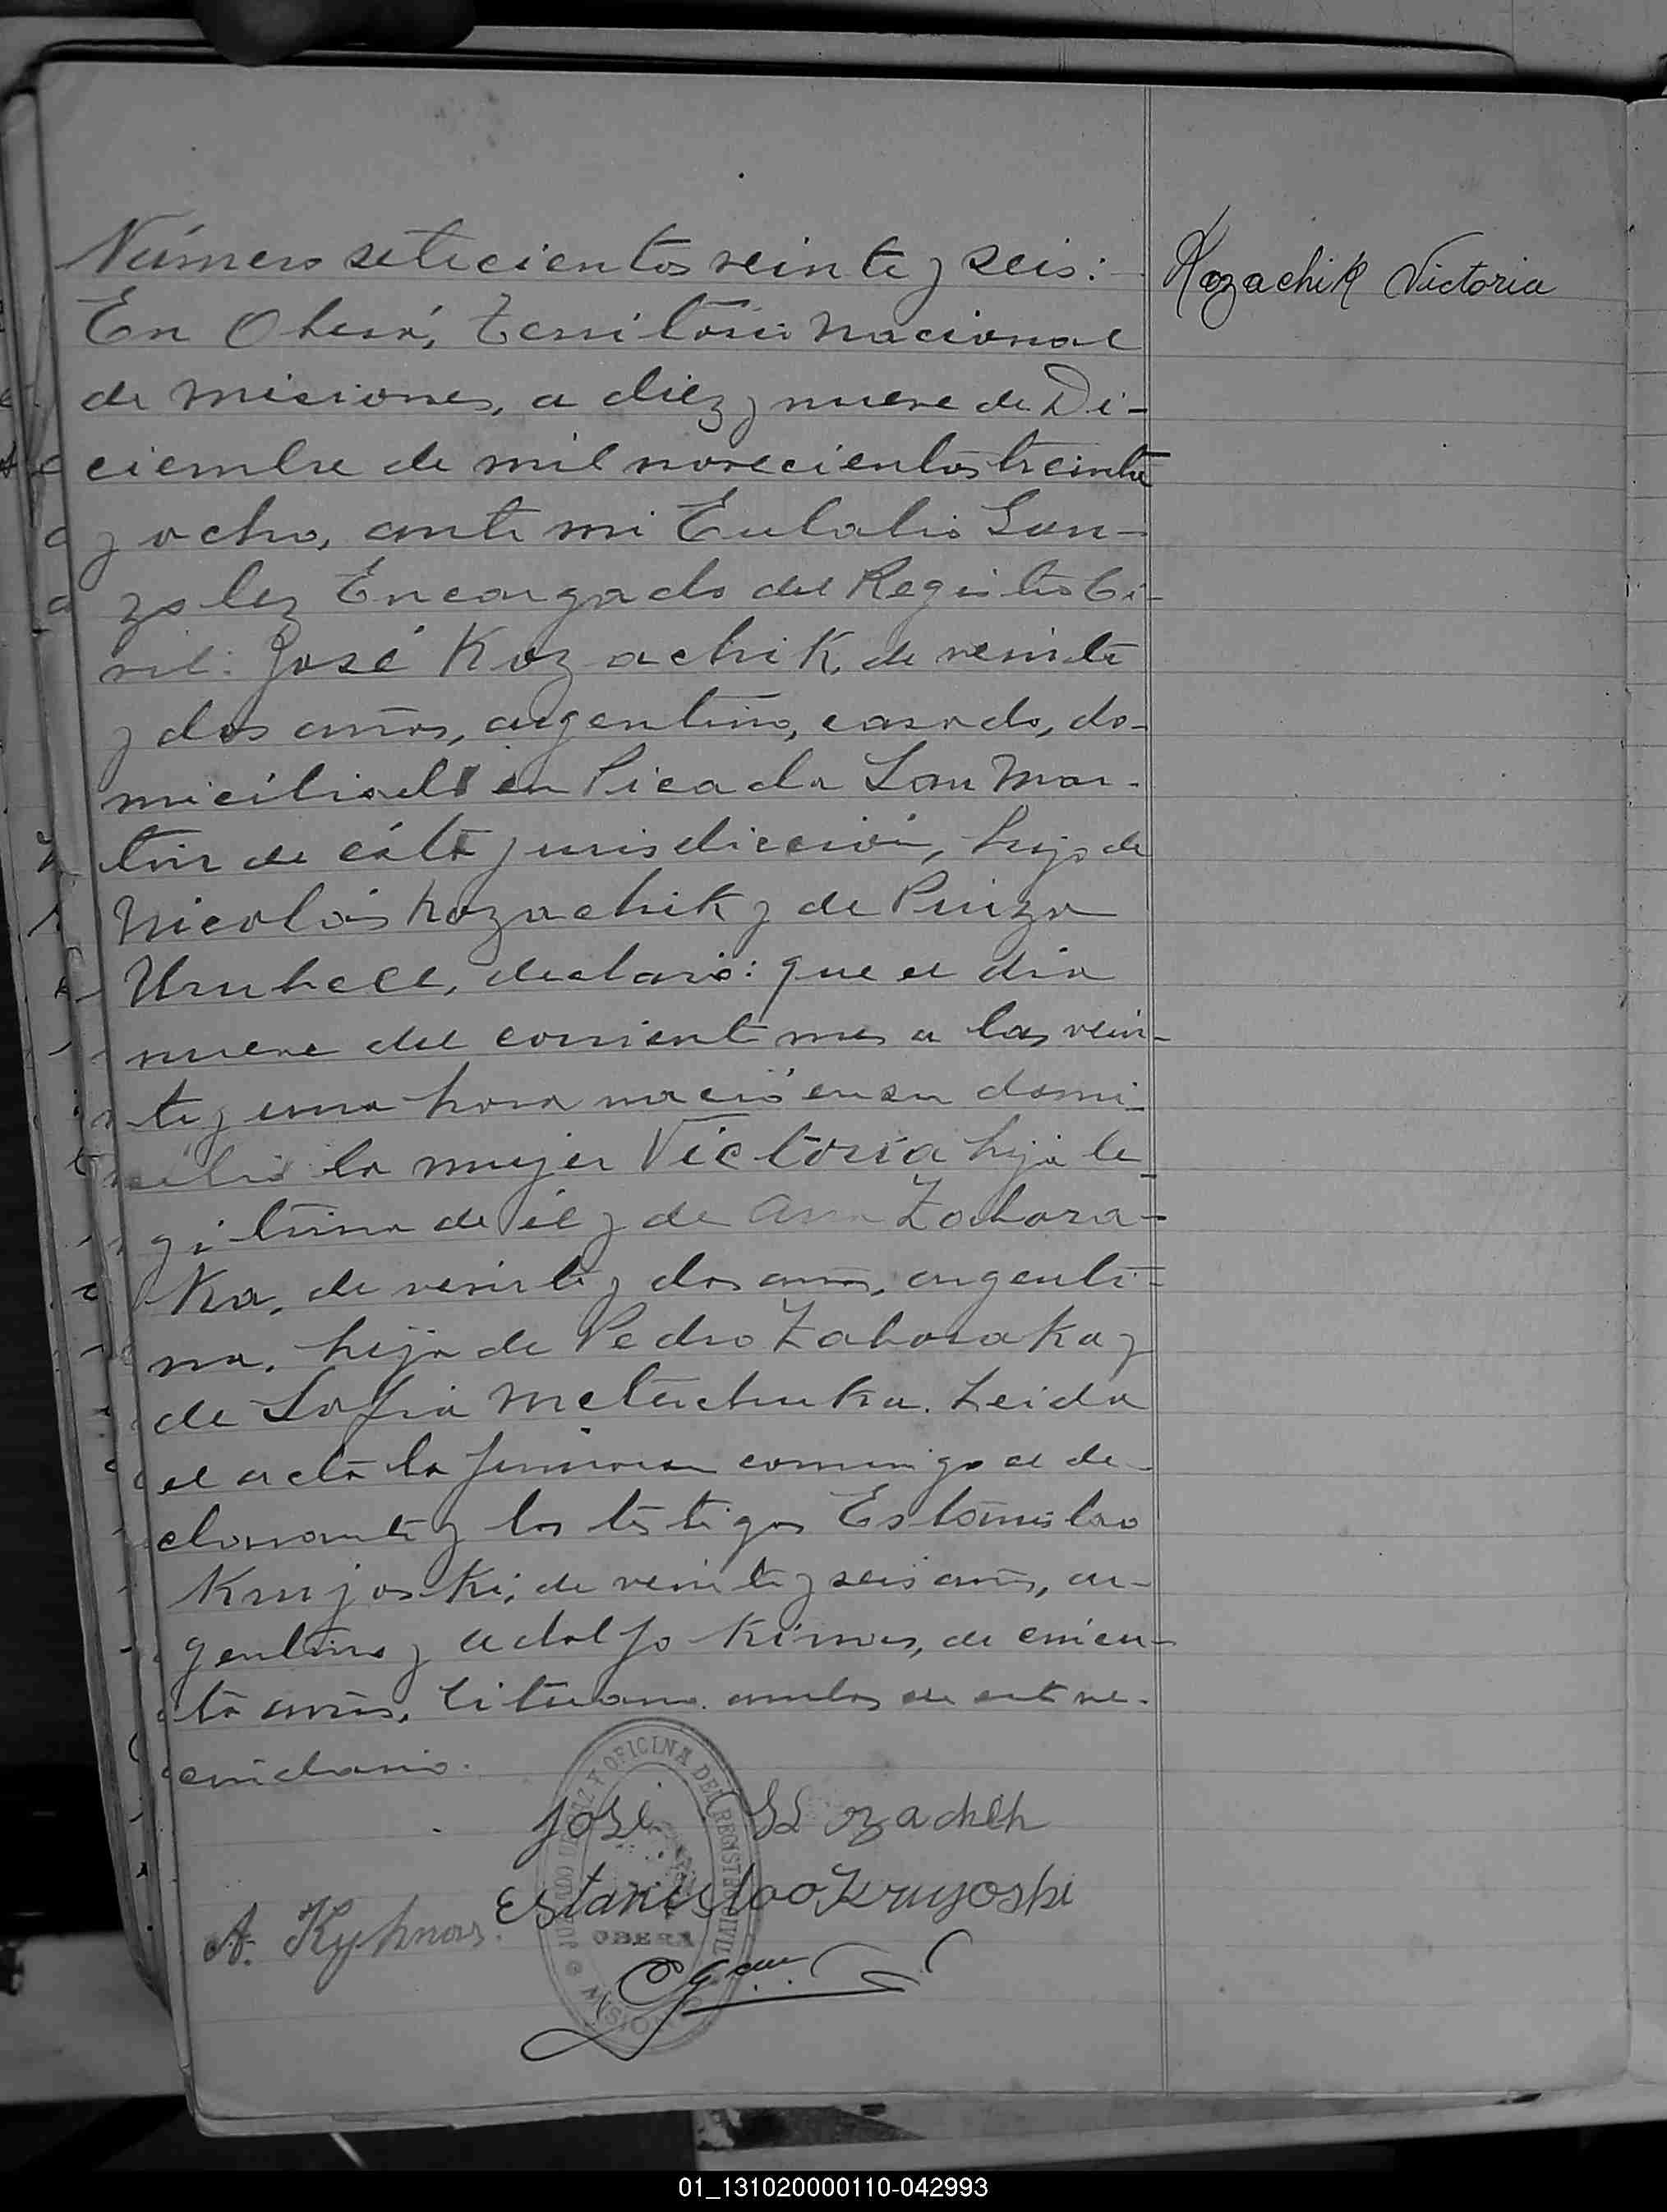 Número setecientos veinte y seis:
Kozachik Victoria
En Oberá, Territorio Nacional
de Misiones, a diez y nueve de Di-
ciembre de mil novecientos treinta
y ocho, ante mi Eulalio Gon-
zalez Encargado del Registro Ci-
vil: José Kozachik, de veinte
y dos años, argentino, casado, do-
miciliado en Picada San Mar-
tin de ésta jurisdicción, hijo de
Nicolás Kozachik y de
declaró: que el dia
nueve del corriente mes a las vein-
te y una hora nació en su domi-
cilio la mujer Victoria hija le-
gitima de él y de Ana Zahora-
ka, de veinte y dos años, argenti-
na, hija de Pedro Zahoraka y
de Sofia Metachuka. Leida
el acta la firmaron conmigo el de-
clarante y los testigos Estanislao
Krujoski, de veinte y seis años, ar-
gentino y Adolfo Kimas, de cincuen-
ta años, lituano, ambos de este ve-
cindario.
José Kozachek
Estanislao Kruyoski
A. Kyhnas.
JUZGADO DE PAZ Y OFICINA DEL REGISTRO CIVIL
OBERA
MISIONES
01_131020000110-042993